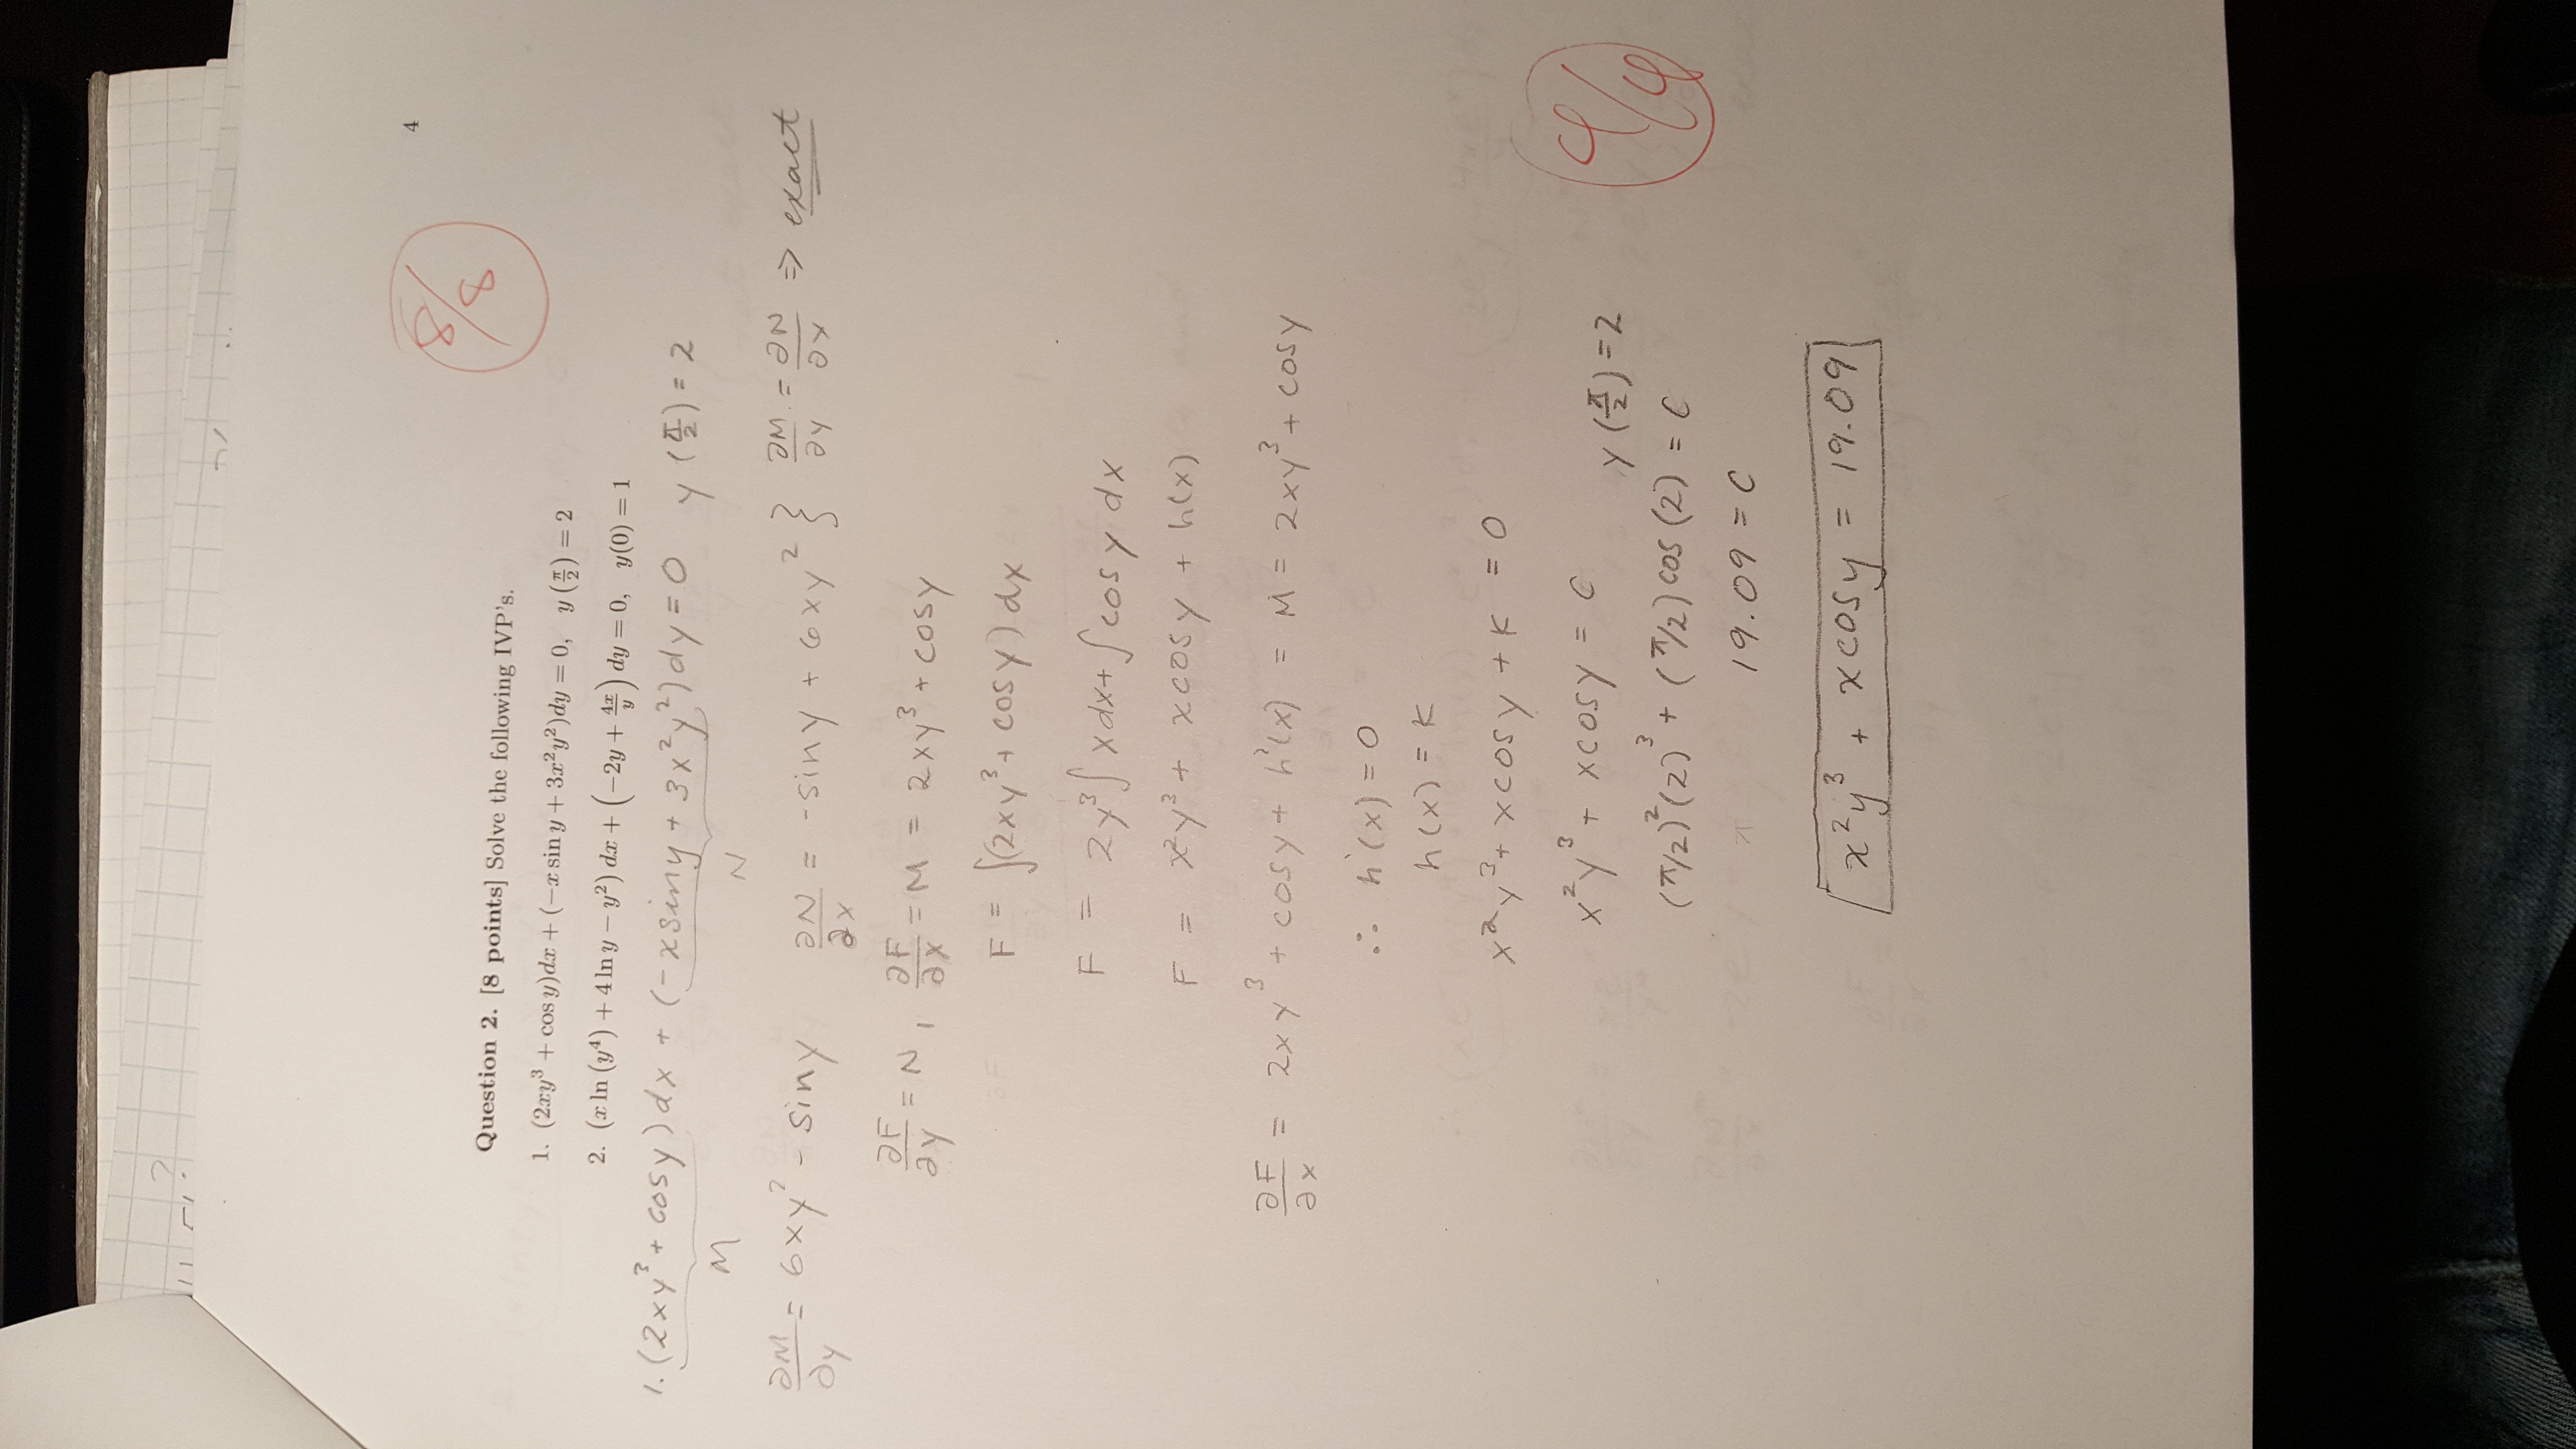 4
8/8
Question 2. [8 points] Solve the following IVP's.
1. (2xy³ + cos y)dx + (−x sin y + 3x²y²)dy = 0, y(π/2) = 2
2. (x ln (y⁴) + 4 ln y − y²) dx + (−2y + 4x/y) dy = 0, y(0) = 1
1. (2xy³ + cosy)dx + (-xsiny + 3x²y²)dy = 0 y(π/2) = 2
M N
∂M/∂y = 6xy² - siny ∂N/∂x = -siny + 6xy² } ∂M/∂y = ∂N/∂x ⇒ exact
∂F/∂y = N, ∂F/∂x = M = 2xy³ + cosy
F = ∫(2xy³ + cosy)dx
F = 2y³∫xdx + ∫cosydx
F = x²y³ + xcosy + h(x)
∂F/∂x = 2xy³ + cosy + h'(x) = M = 2xy³ + cosy
∴ h'(x) = 0
h(x) = K
x²y³ + xcosy + K = 0
x²y³ + xcosy = C
y(π/2) = 2
(π/2)²(2)³ + (π/2)cos(2) = C
4/4
19.09 = C
x²y³ + xcosy = 19.09